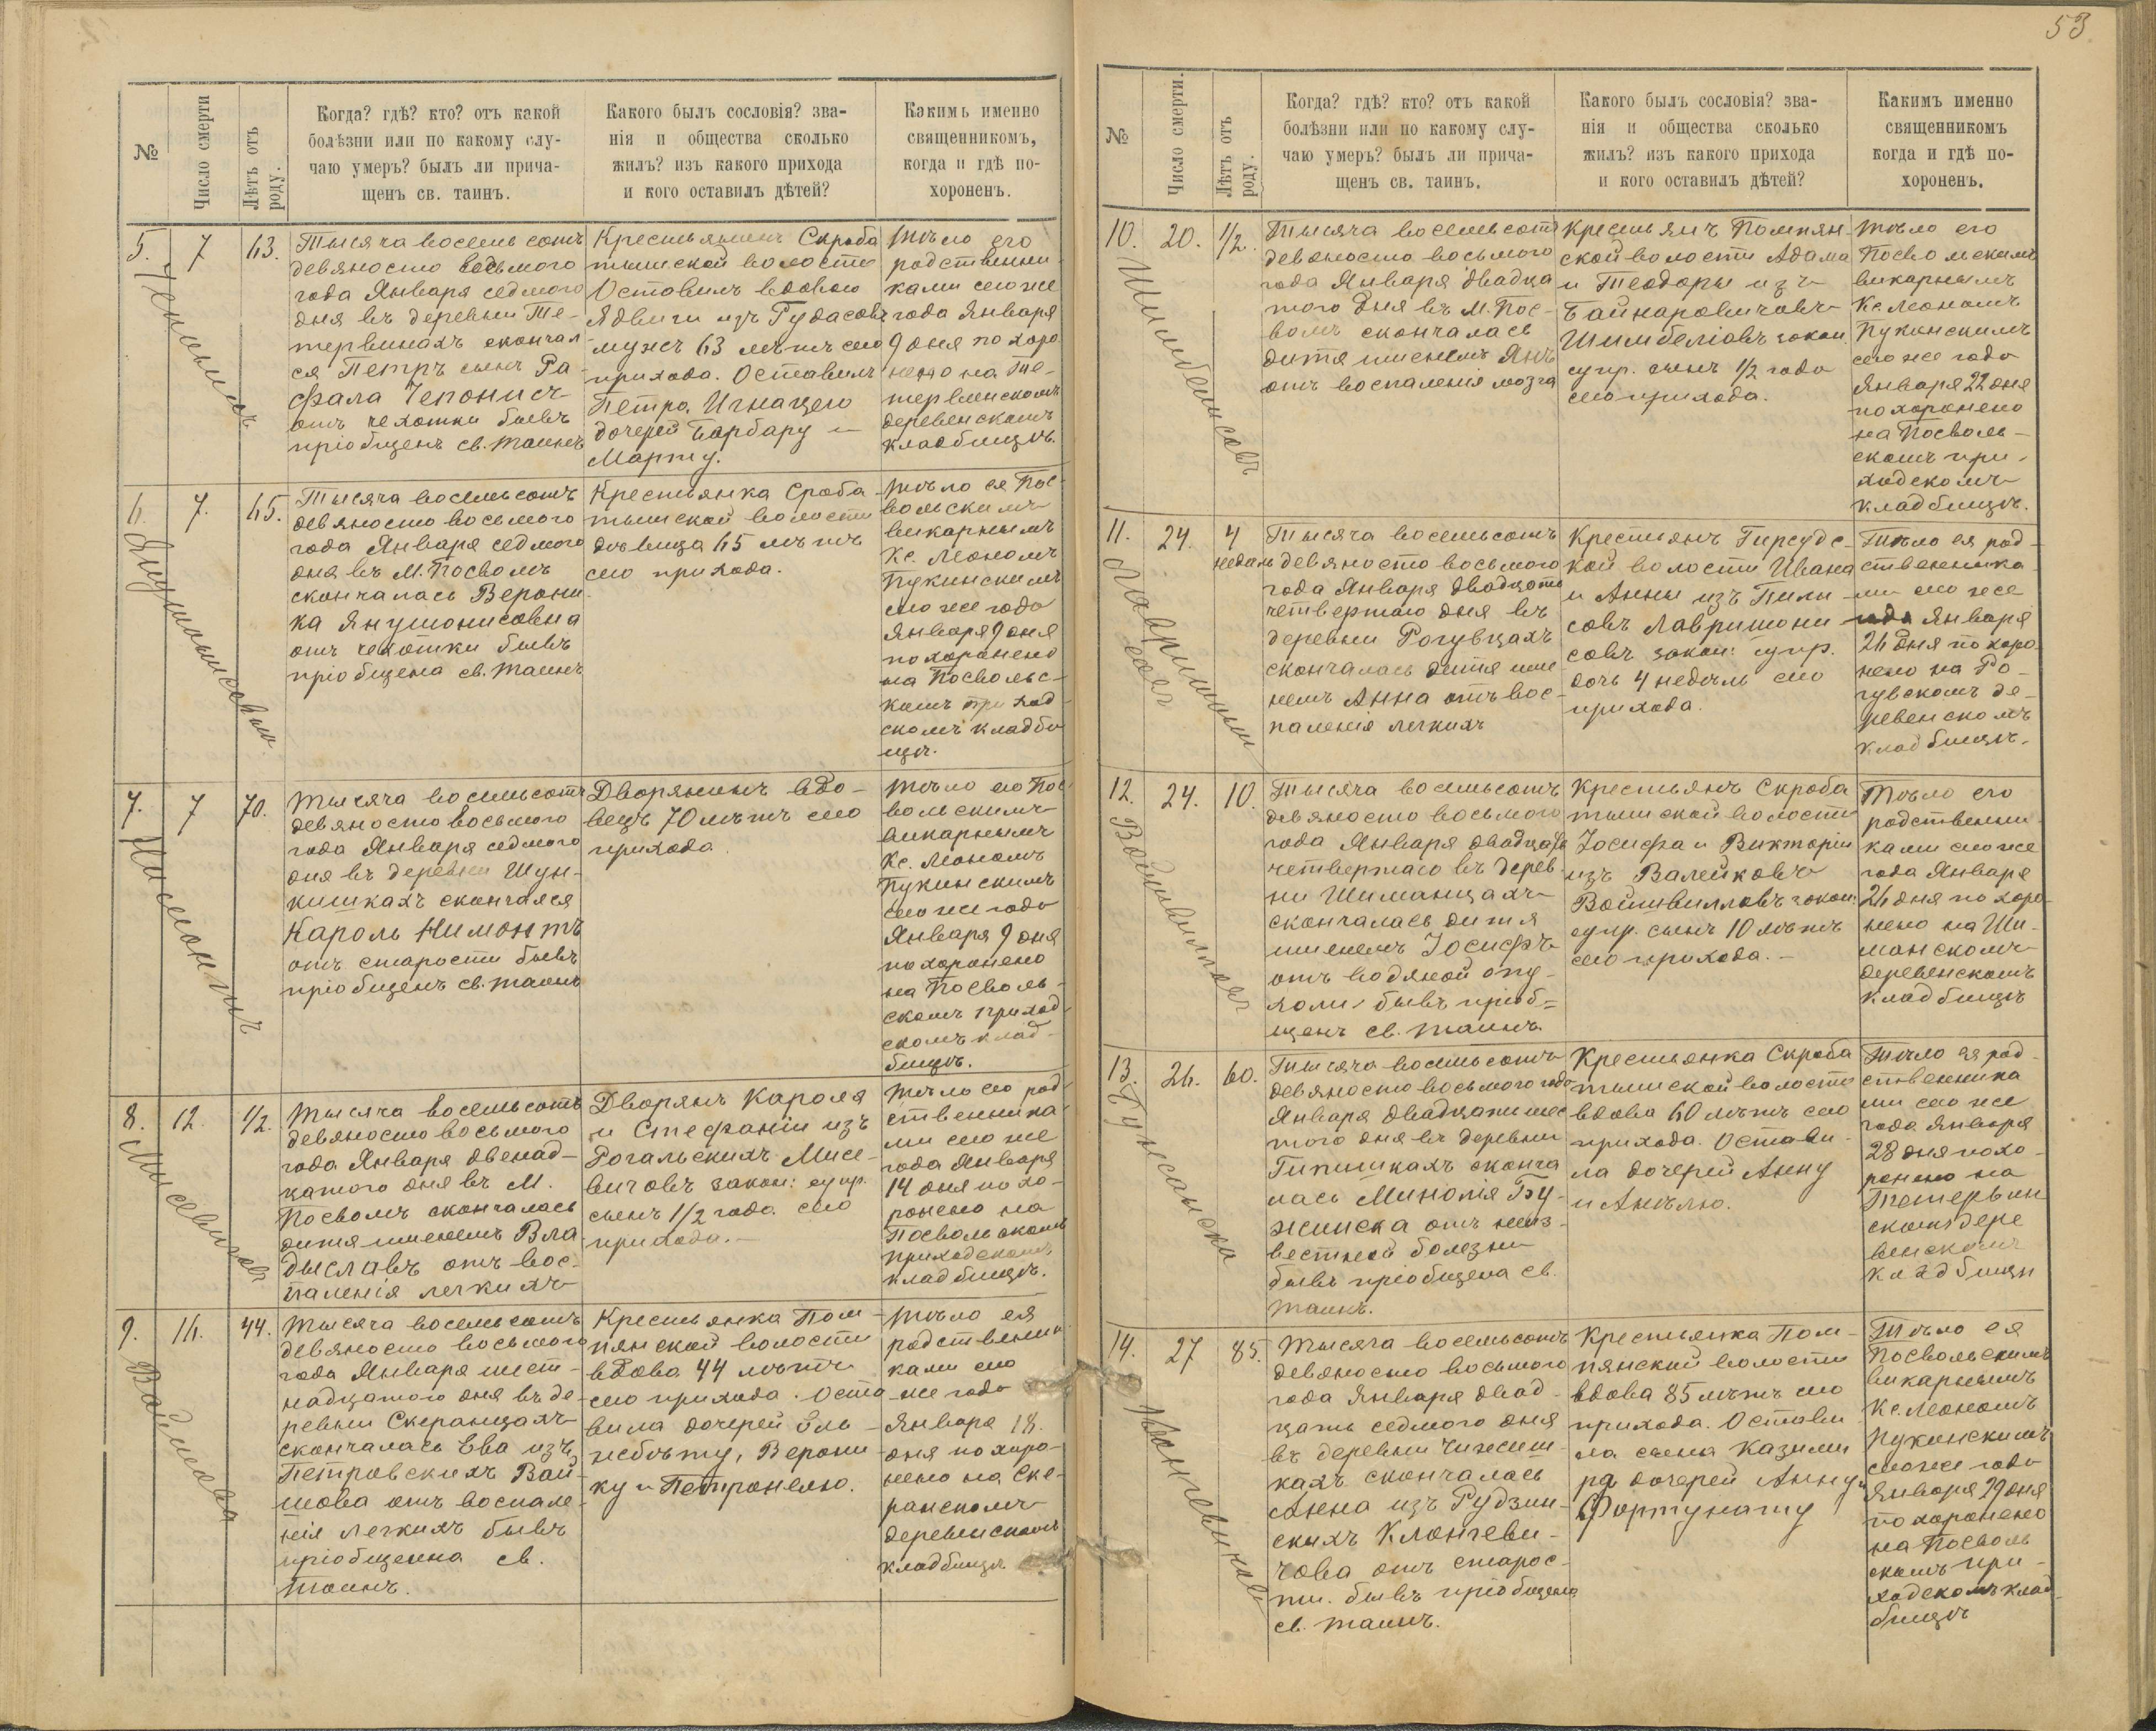 53
№
Число смерти
Лѣтъ отъ роду.
Когда? гдѣ? кто? отъ какой
болѣзни или по какому слу-
чаю умеръ? былъ ли прича-
щенъ св. таинъ.
Какого былъ сословія? зва-
нія и общества сколько
жилъ? изъ какого прихода
и кого оставилъ дѣтей?
Какимъ именно
священникомъ,
когда и гдѣ по-
хороненъ.
5.
7
63.
Тысяча восемь сотъ
девяносто восьмого
года Января седмого
дня въ деревни Те-
тервинахъ скончал
ся Петръ сынъ Ра-
фала Чепонисъ
отъ чехотки бывъ
пріобщенъ св. таинъ
Крестьянинъ Скроба
тышской волости
Оставилъ вдовою
Ядвиги изъ Гудасовъ
мужъ 63 лѣтъ сего
прихода. Оставилъ
Петра, Игнацего
дочерей Барбару и
Марту.
Тѣло его
родственни-
ками сего же
года Января
9 дня похоро
нено на Те-
тервинскомъ
деревенскомъ
кладбищѣ.
6.
7.
65.
Янушонисовна
Тысяча восемьсотъ
девяносто восьмого
года Января седмого
дня въ М. Посволѣ
скончалась Верони-
ка Янушонисовна
отъ чехотки бывъ
пріобщена св. таинъ
Крестьянка Сроба-
тышской волости
дѣвица 65 лѣтъ
сего прихода.
Тѣло ея Пос-
вольскимъ
викарнымъ
Кс. Леономъ
Пукинскимъ
сего же года
Января 9 дня
похоронено
на Посвольс-
комъ приход-
скомъ кладби
щѣ.
7.
7
70.
Нимонтъ
Тысяча восемьсотъ
девяносто восьмого
года Января седмого
дня въ деревни Шун-
кишкахъ скончался
Кароль Нимонтъ
отъ старости бывъ
пріобщенъ св. таинъ
Дворянинъ вдо-
вецъ 70 лѣтъ сего
прихода.
Тѣло его Пос
вольскимъ
викарнымъ
Кс. Леономъ
Пукинскимъ
сего же года
Января 9 дня
похоронено
на Посволь-
скомъ приход-
скомъ клад-
бищѣ.
8.
12.
1/2.
Мисевичовъ
Тысяча восемьсотъ
девяносто восьмого
года Января двенад-
цатого дня въ М.
Посволѣ скончалась
дитя именемъ Вла
дыславъ отъ вос-
паленія легкихъ
Дворянъ Кароля
и Стефаніи изъ
Рогальскихъ Мисе-
вичовъ закон: супр.
сынъ 1/2 года сего
прихода.
Тѣло его род-
ственника-
ми сего же
года Января
14 дня похо-
ронено на
Посвольскомъ
приходскомъ
кладбищѣ.
9.
16.
44.
Вайшова
Тысяча восемьсотъ
девяносто восьмого
года Января шест-
надцатого дня въ де-
ревни Скеранцахъ
скончалась Ева изъ
Петровскихъ Вай-
шова отъ воспале-
нія легкихъ бывъ
пріобщенна св.
таинъ.
Крестьянка Пом-
пянской волости
вдова 44 лѣтъ
сего прихода. Оста
вила дочерей Эль-
жбѣту, Верони
ку и Петронелю.
Тѣло ея
родственни-
ками сего
же года
Января 18.
дня похоро-
нено на Ске-
ранскомъ
деревенскомъ
кладбищѣ
№
Число смерти.
Лѣтъ отъ роду.
Когда? гдѣ? кто? отъ какой
болѣзни или по какому слу-
чаю умеръ? былъ ли прича-
щенъ св. таинъ.
Какого былъ сословія? зва-
нія и общества сколько
жилъ? изъ какого прихода
и кого оставилъ дѣтей?
Какимъ именно
священникомъ
когда и гдѣ по-
хороненъ.
10.
20.
1/2.
Тысяча восемьсотъ
девяносто восьмого
года Января двадца
того дня въ М. Пос-
волѣ скончалась
дитя именемъ Янъ
отъ воспаленія мозга
Крестьянъ Помпян-
ской волости Адама
и Теодоры изъ
Байнаровичовъ
Шимбелiовъ закон.
супр. сынъ 1/2 года
сего прихода.
Тѣло его
Посвольскимъ
викарнымъ
Кс. Леономъ
Пукинскимъ
сего же года
Января 22 дня
похоронено
на Посволь-
скомъ при-
ходскомъ
кладбищѣ.
11.
24.
4
недѣль
Тысяча восемьсотъ
девяносто восьмого
года Января двадцать
четвертаго дня въ
деревни Рогувцахъ
скончалась дитя име
немъ Анна отъ вос-
паленія легкихъ
Крестьянъ Гирсудс-
кой волости Ивана
и Анны изъ Пили-
совъ Лавришони-
совъ закон: супр.
дочь 4 недѣль сего
прихода.
Тѣло ея род-
ственника-
ми сего же
года Января
26 дня похоро
нено на Ро-
гувскомъ де-
ревенскомъ
кладбищѣ.
12.
24.
10.
Войшвилловъ
Тысяча восемьсотъ
девяносто восьмого
года Января двадцать
четвертаго въ дерев-
ни Шиманцахъ
скончалась дитя
именемъ Іосифъ
отъ водяной опу-
холи бывъ пріоб-
щенъ св. таинъ.
Крестьянъ Скроба
тышской волости
Іосифа и Викторіи
изъ Валейковъ
Войшвилловъ закон:
супр. сынъ 10 лѣтъ
сего прихода.
Тѣло его
родственни-
ками сего же
года Января
26 дня похоро-
нено на Ши-
манскомъ
деревенскомъ
кладбищѣ
13.
26.
60.
Тысяча восемьсотъ
девяносто восьмого года
Января двадцать шес
того дня въ деревни
Гипишкахъ сконча
лась Минолія Бу-
жинска отъ неиз-
вестной болезни
бывъ пріобщена св.
таинъ.
Крестьянка Скроба
тышской волости
вдова 60 лѣтъ сего
прихода. Остави-
ла дочерей Анну
и Анѣлю.
Тѣло ея род-
ственника
ми сего же
года Января
28 дня похо-
ронено на
Тетервин
скомъ дере
венскомъ
кладбищи
14.
27
85.
Тысяча восемьсотъ
девяносто восьмого
года Января двад-
цать седмого дня
въ деревни Чижиш-
кахъ скончалась
Анна изъ Рудзин-
скихъ Клонгеви-
чова отъ старос-
ти. бывъ пріобщена
св. таинъ.
Крестьянка Пом-
пянской волости
вдова 85 лѣтъ сего
прихода. Остави
ла сына Казими
ра дочерей Анну и
Фортунату
Тѣло ея
Посвольскимъ
викарнымъ
Кс. Леономъ
Пукинскимъ
сего же года
Января 29 дня
похоронено
на Посволь
скомъ при-
ходскомъ клад-
бищѣ